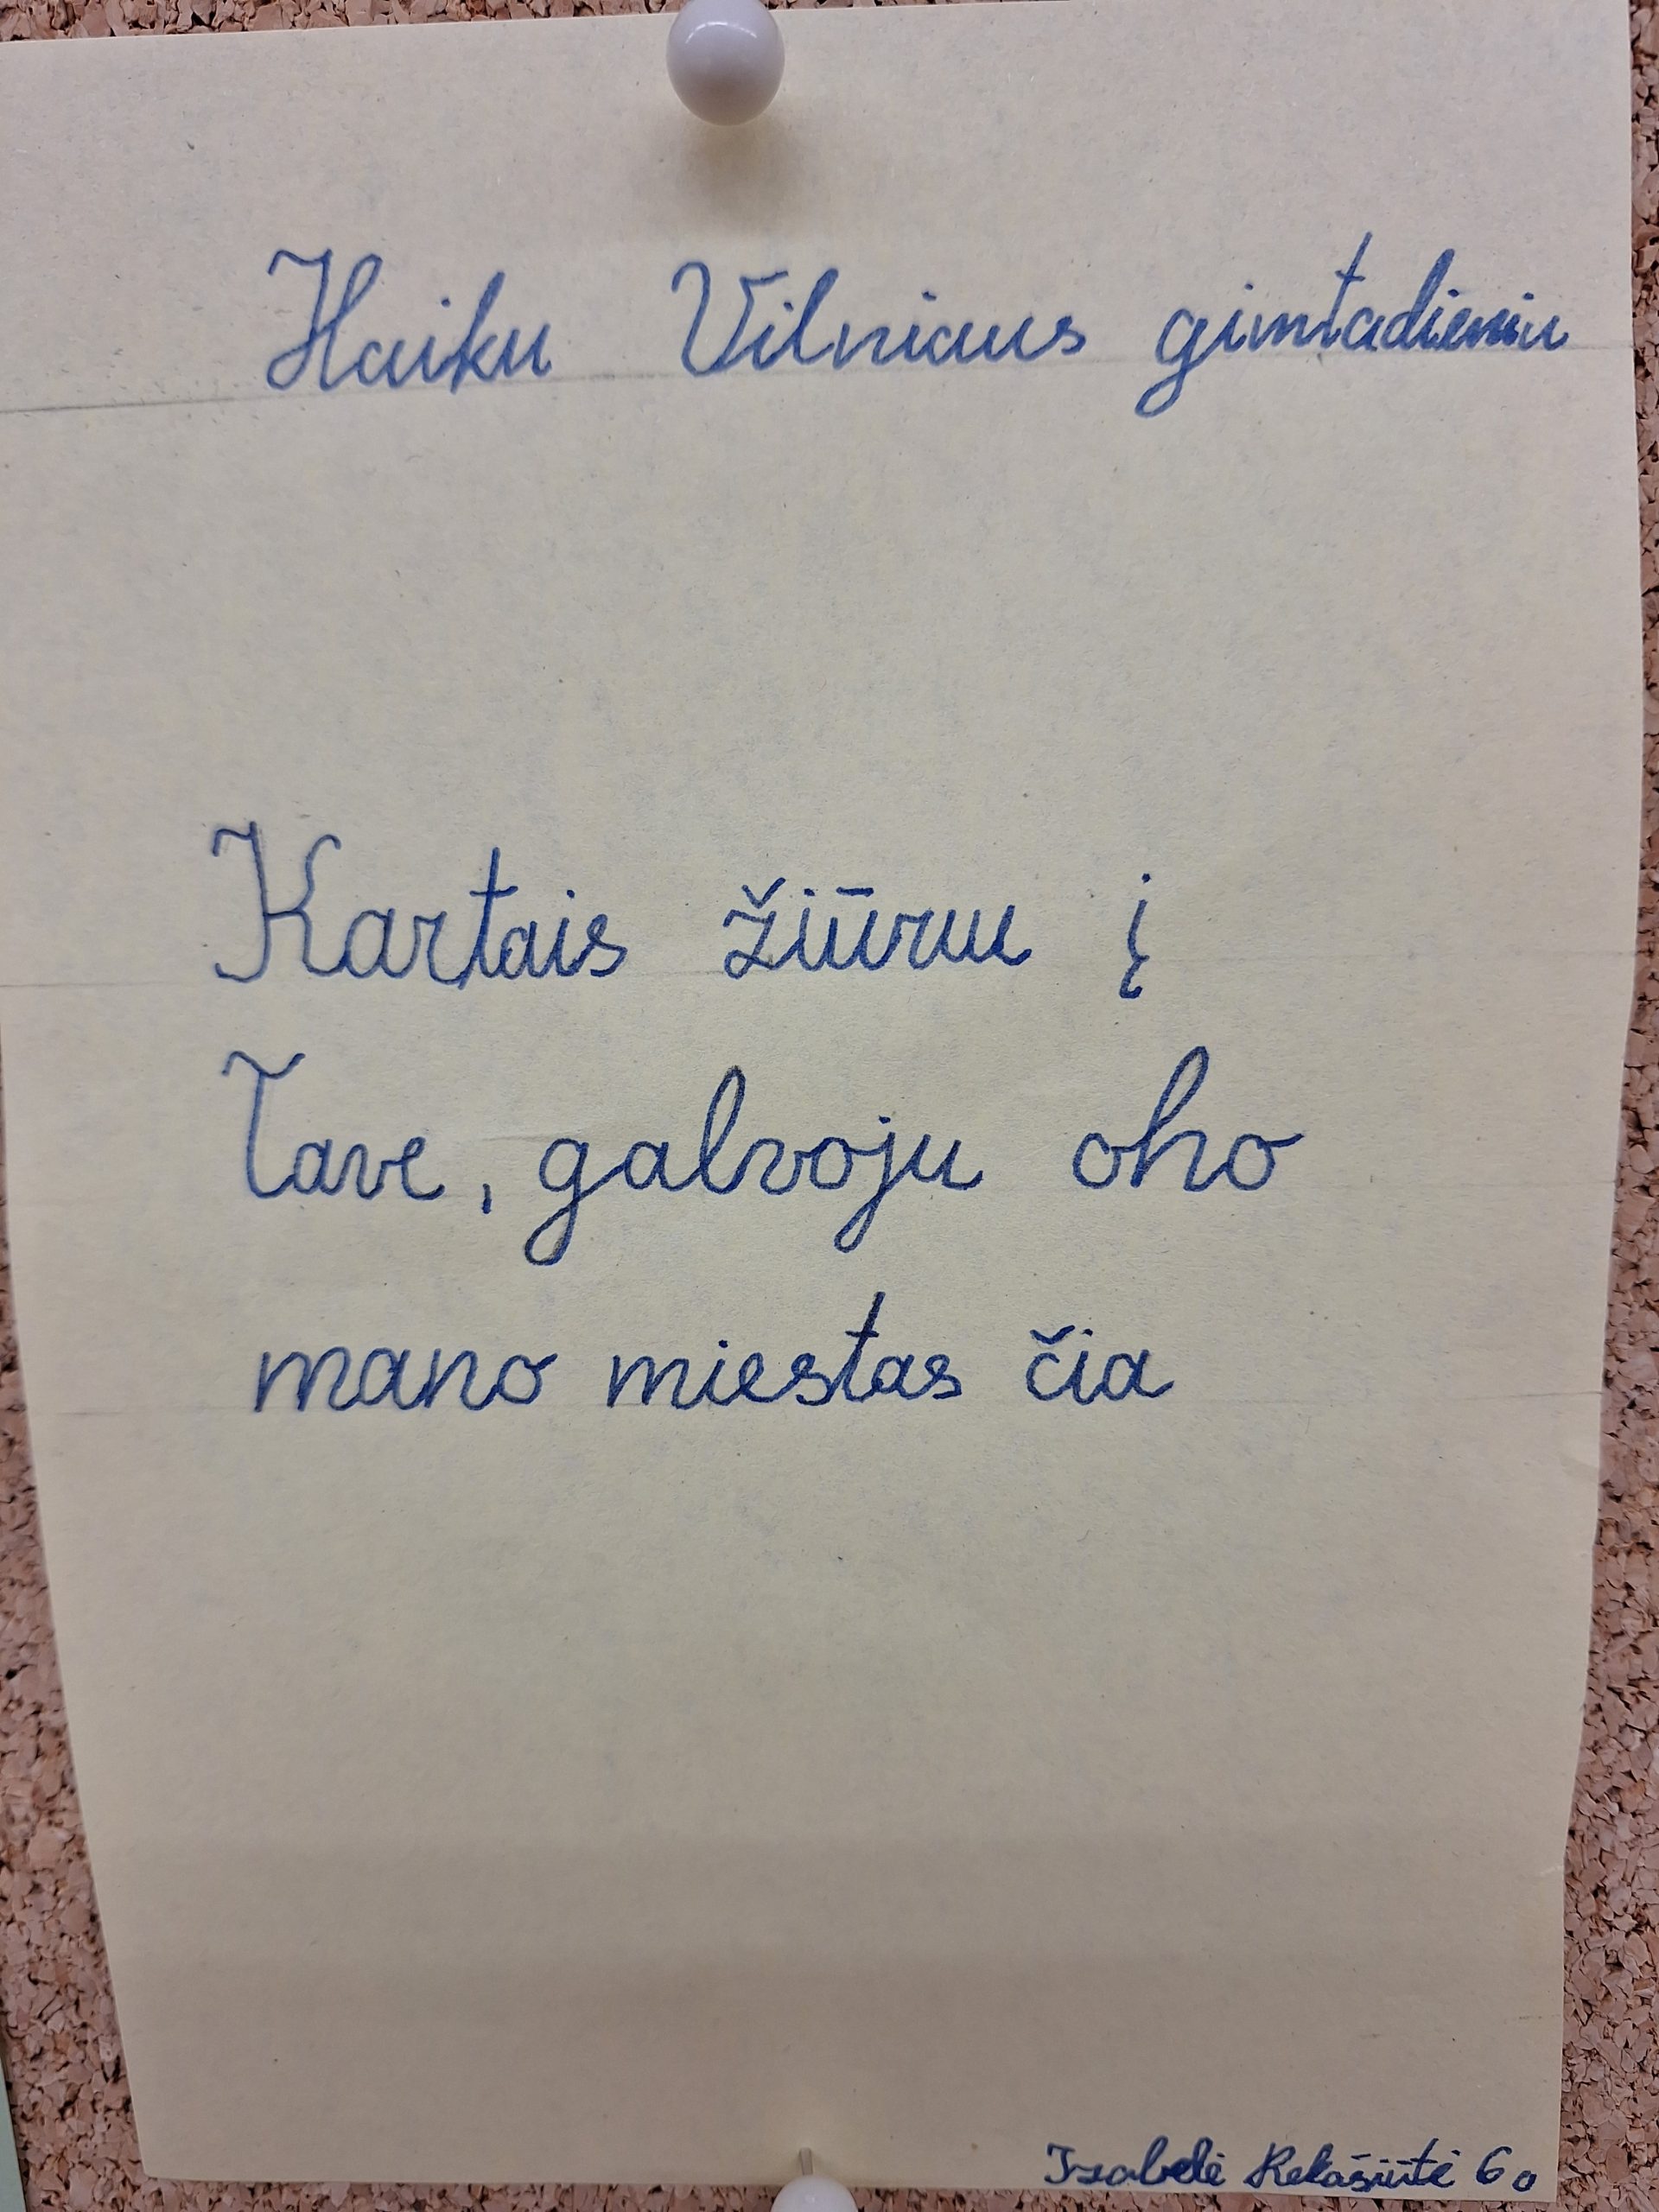 Haiku Vilniaus gimtadieniu
Kartais žiūru į
Tave, galvoju oho
mano miestas čia
Izabelė Rekašiūtė 6o